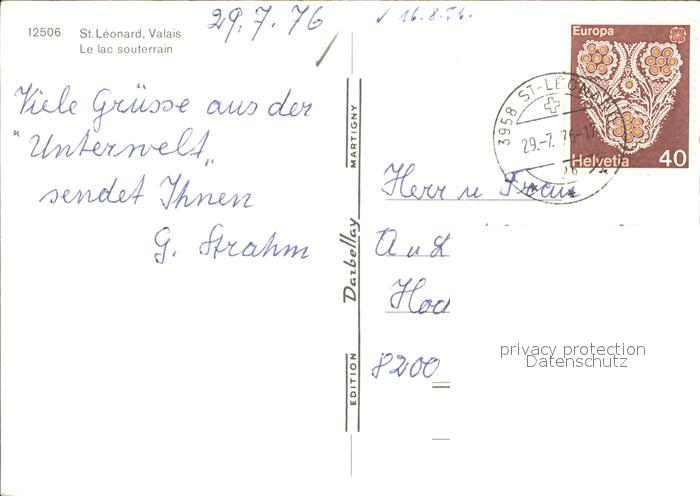 12506 St. Léonard, Valais
Le lac souterrain
29.7.76
✓ 16.8.76.
Europa
3958 ST-LÉONARD
29.-7. 76-17
Helvetia 40
Viele Grüsse aus der
"Unterwelt"
sendet Ihnen
G. Strahm
EDITION Darbellay MARTIGNY
Herr u Frau
A u L
Hoc
8200
privacy protection
Datenschutz